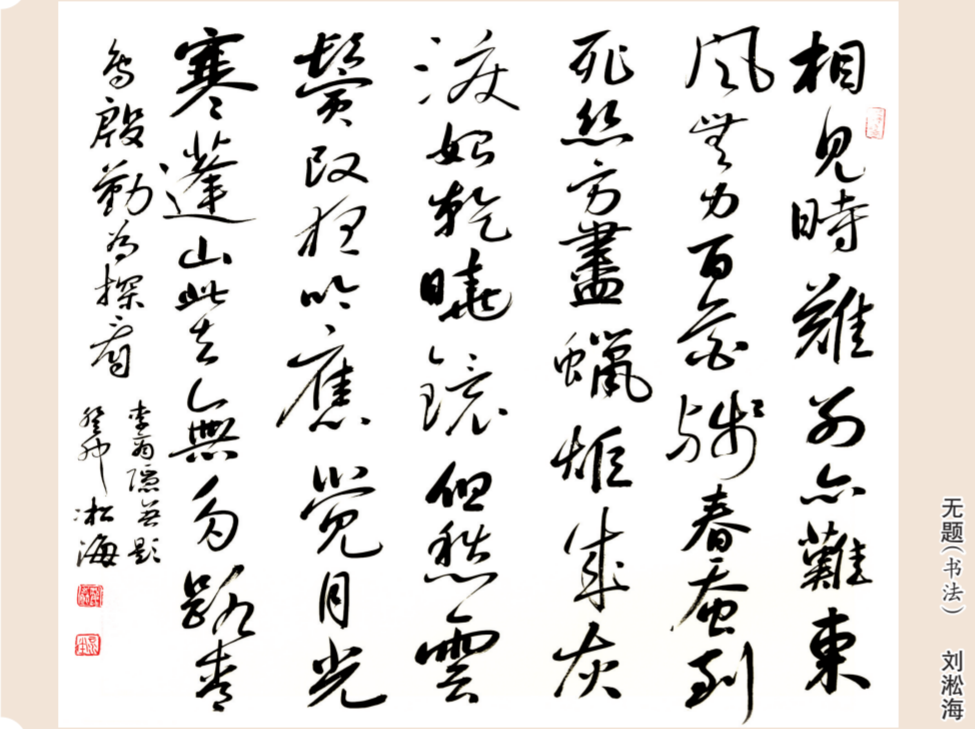 相見時難别亦難東
風無力百花殘春蚕到
死絲方盡蠟炬成灰
淚始乾曉鏡但愁雲
鬢改夜吟應觉月光
寒蓬山此去無多路青
鸟殷勤為探看
李商隱無題
癸卯 淞海
无题(书法) 刘淞海